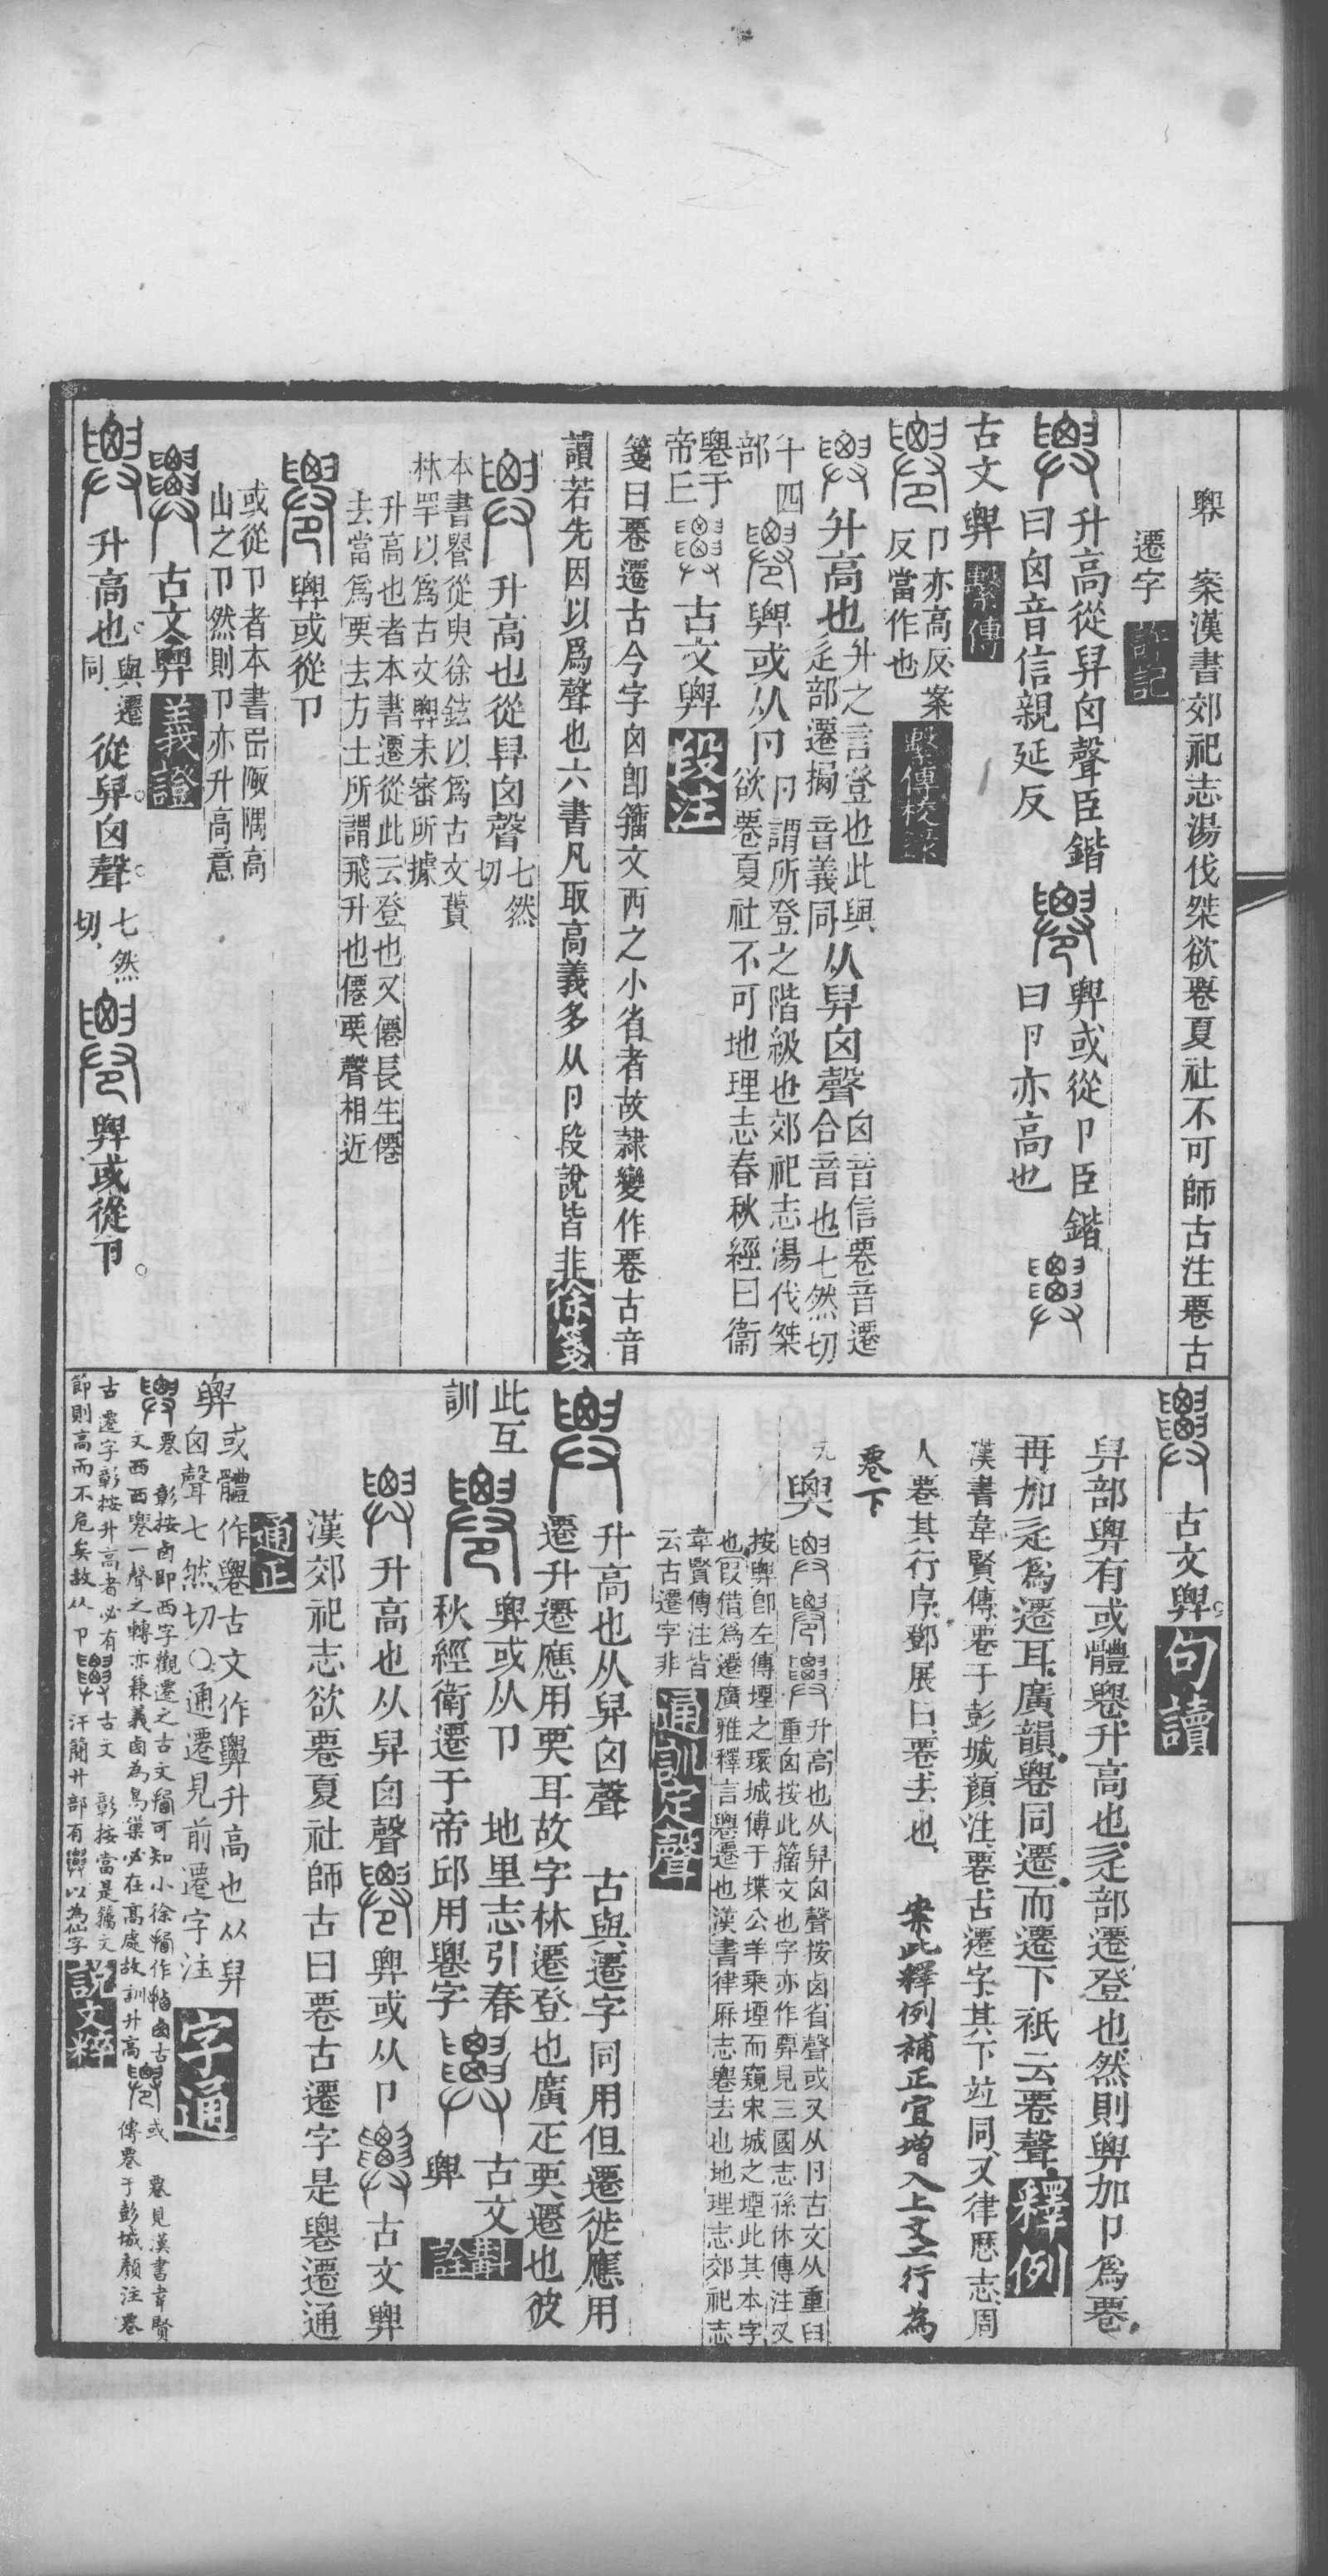 案漢書郊祀志湯伐桀欲䙴夏社不可師古注䙴古
遷字 許記
升高從舁囟聲臣鍇
曰囟音信親延反
𢍱或從卪臣鍇
曰卪亦高也
古文𢍱 繫傳
卪亦高反案
反當作也 繫傳校錄
升高也
升之言登也此與
辵部遷搹音義同
从舁囟聲
囟音信䙴音遷
合音也七然切
十四
部
𢍱或从卪
卪謂所登之階級也郊祀志湯伐桀
欲䙴夏社不可地理志春秋經曰衞
䙴于
帝丘
古文𢍱 段注
箋曰䙴遷古今字囟卽籒文西之小省者故隷變作䙴古音
讀若先因以爲聲也六書凡取高義多从卪段說皆非 徐箋
升高也從舁囟聲
七然
切
本書𦦼從臾徐鉉以爲古文蕢
林罕以爲古文𢍱未審所據
升高也者本書遷從此云登也又僊長生僊
去當爲䙴去方士所謂飛升也僊䙴聲相近
𢍱或從卪
或從卪者本書𡴎陬隅高
山之卪然則卪亦升高意
古文𢍱 義證
升高也
與遷
同
從舁囟聲
七然
切
𢍱或從卪
古文𢍱 句讀
舁部𢍱有或體䙴升高也辵部遷登也然則𢍱加卪爲䙴
再加辵爲遷耳廣韻䙴同遷而遷下祇云䙴聲 釋例
漢書韋賢傳䙴于彭城顏注䙴古遷字其下竝同又律歷志周
人䙴其行序鄧展曰䙴去也 案此釋例補正宜增入上文二行爲
䙴下
升高也从舁囟聲按囟省聲或又从卪古文从重臼
重囟按此籒文也字亦作䙴見三國志孫休傳注又
按𢍱卽左傳堙之環城傅于堞公羊乘堙而窺宋城之堙此其本字
也叚借爲遷廣雅釋言䙴遷也漢書律厤志䙴去也地理志郊祀志
韋賢傳注皆
云古遷字非 通訓定聲
升高也从舁囟聲 古與遷字同用但遷徙應用
遷升遷應用䙴耳故字林遷登也廣疋䙴遷也彼
此互
訓
𢍱或从卪 地里志引春
秋經衛遷于帝邱用䙴字
古文
𢍱 斠詮
升高也从舁囟聲
𢍱或从卪
古文𢍱
漢郊祀志欲䙴夏社師古曰䙴古遷字是䙴遷通
通正
𢍱或體作䙴古文作𢍱升高也从舁
囟聲七然切○通遷見前遷字注 字通
䙴 彰按卤卽西字觀遷之古文
古遷字彰按升高者必有
節則高而不危矣故从卪
古文 彰按當是籒文
汗簡廾部有 以為仙字 說文粹
或 䙴見漢書韋賢
傳䙴于彭城顏注䙴